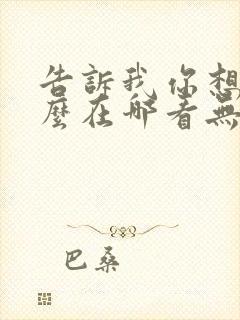 告訴我你想
麼在那看無
巴桑